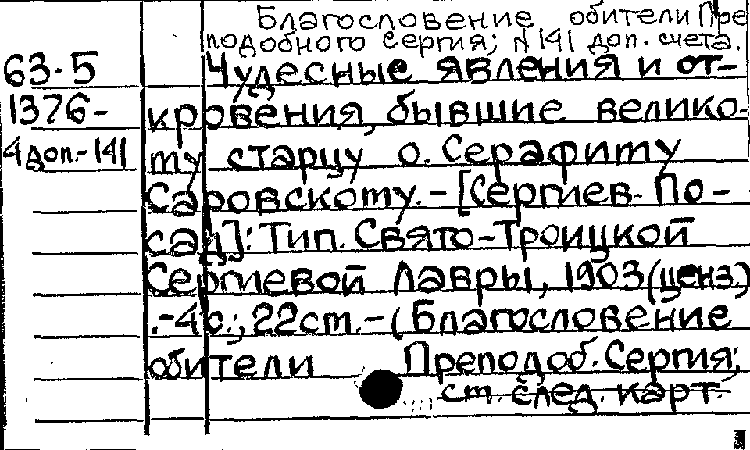 Благословение обители Пре
подобного Сергия; № 141 доп. счета.
63-5 Чудесные явления и от-
1376- кровения, бывшие велико-
4 доп.-141 му старцу о. Серафиму
Саровскому. - [Сергиев. По-
сад]: Тип. Свято-Троицкой
Сергиевой Лавры, 1903 (ценз.)
.-4с.; 22см. - (Благословение
обители Преподоб. Сергия;
см. след. карт.